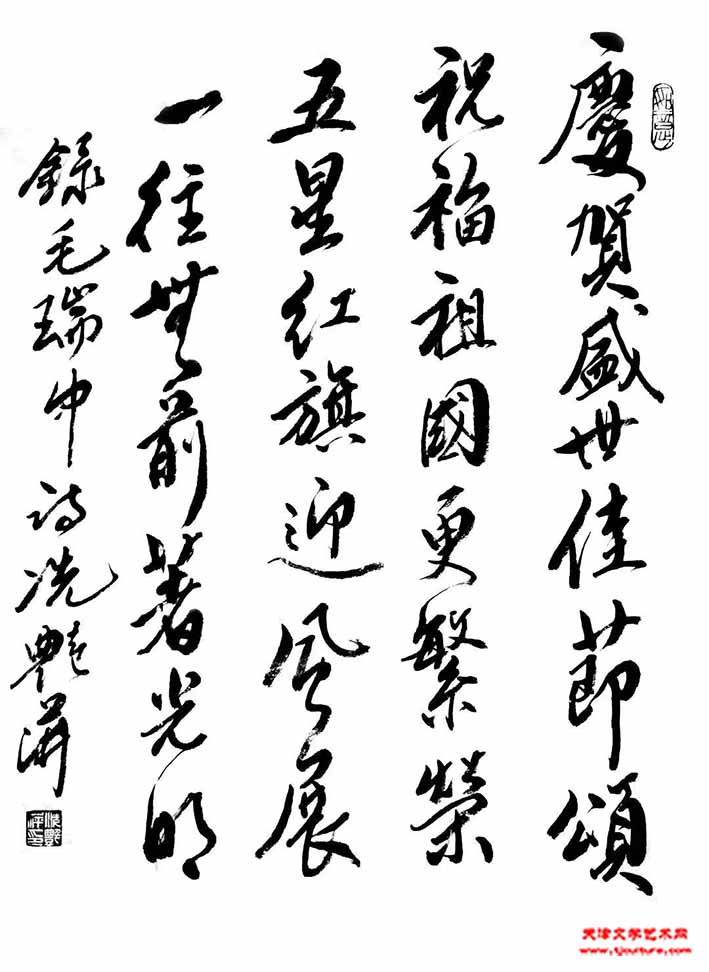 慶賀盛世佳節頌
祝福祖國更繁榮
五星红旗迎風展
一往無前著光明
録毛瑞中詩冼艷萍
天津文学艺术网
www.tjculture.com